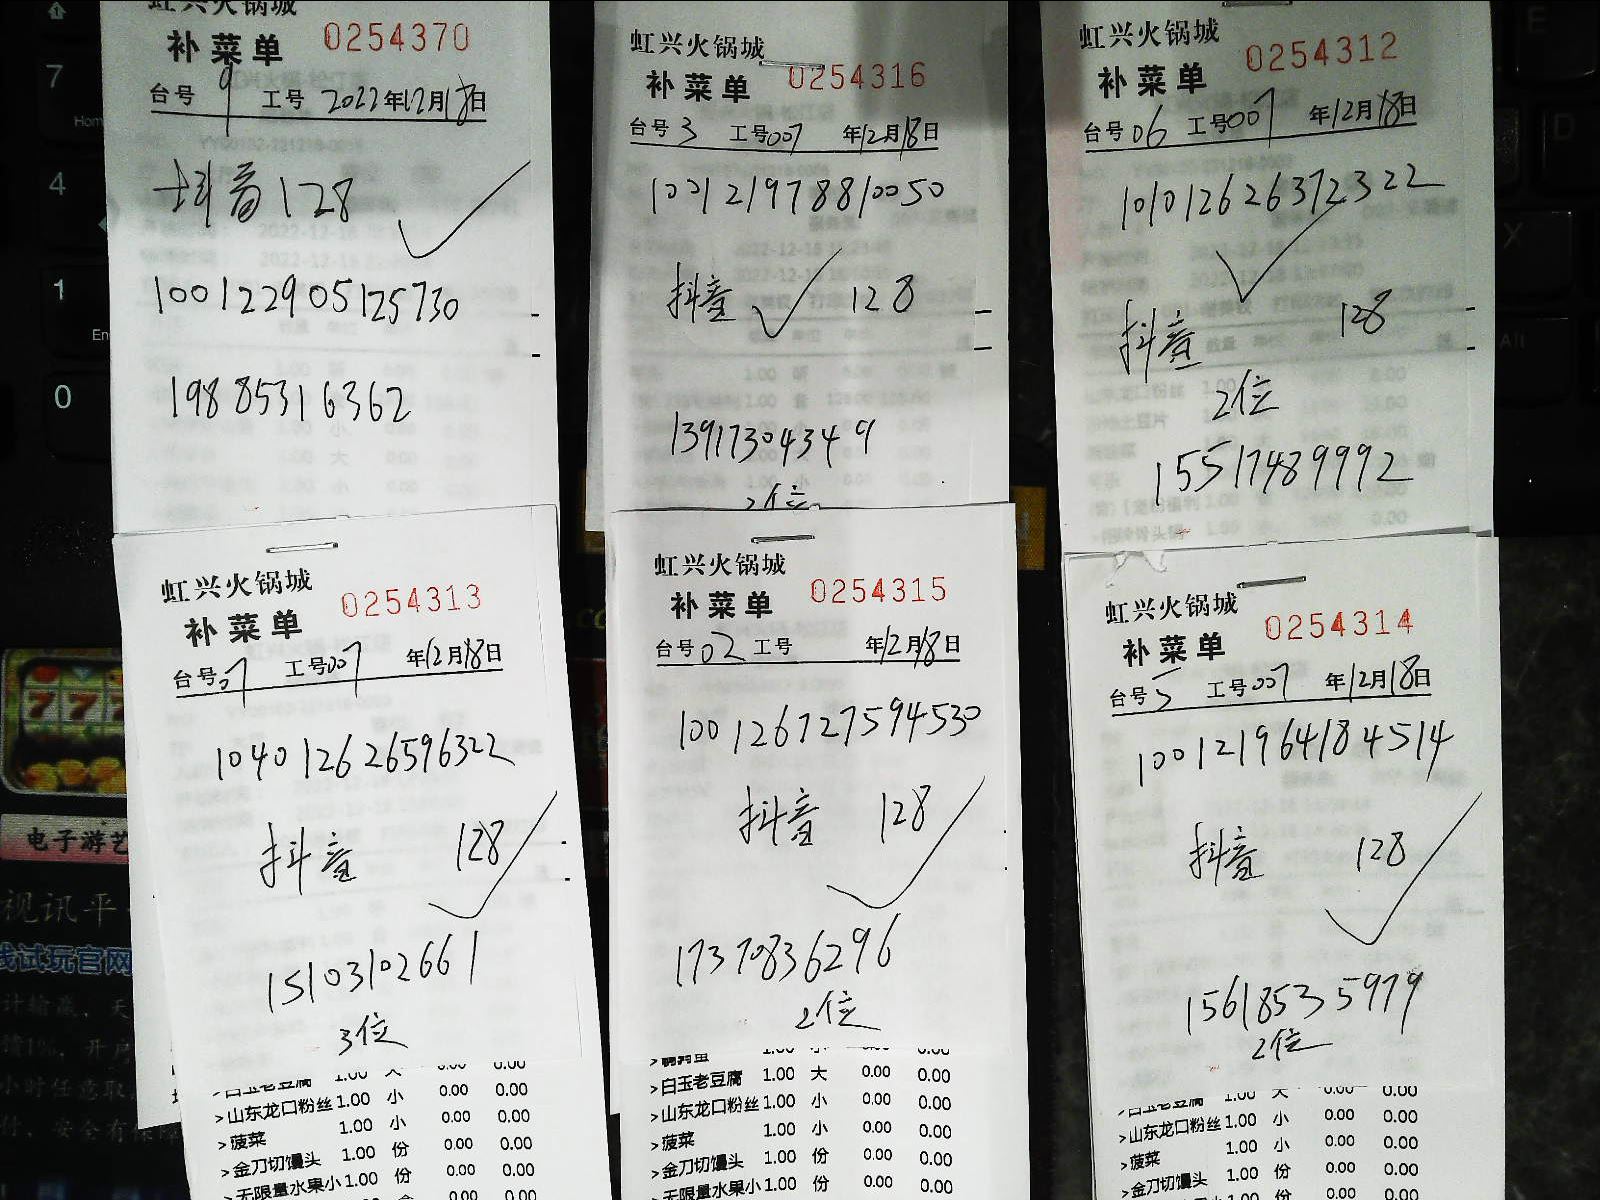 虹兴火锅城
补菜单 0254370
台号 9 工号 2022年12月18日
抖音128
100122905125730
19885316362
虹兴火锅城
补菜单 0254316
台号 3 工号007 年12月18日
100121978810050
抖音 128
13917304349
2位
虹兴火锅城
补菜单 0254312
台号06 工号007 年12月18日
101012626372322
抖音 128
2位
15517489992
虹兴火锅城
补菜单 0254313
台号07 工号007 年12月18日
104012626596322
抖音 128
15103102661
3位
>白玉老豆腐 1.00 大 0.00 0.00
>山东龙口粉丝 1.00 小 0.00 0.00
>菠菜 1.00 小 0.00 0.00
>金刀切馒头 1.00 份 0.00 0.00
>无限量水果小 1.00 份 0.00 0.00
虹兴火锅城
补菜单 0254315
台号02 工号 年12月18日
100126727594530
抖音 128
17370836296
2位
1.00 小 0.00 0.00
>白玉老豆腐 1.00 大 0.00 0.00
>山东龙口粉丝 1.00 小 0.00 0.00
>菠菜 1.00 小 0.00 0.00
>金刀切馒头 1.00 份 0.00 0.00
>无限量水果小 1.00 份 0.00 0.00
虹兴火锅城
补菜单 0254314
台号5 工号007 年12月18日
100121964184514
抖音 128
15618535979
2位
>白玉老豆腐 1.00 大 0.00 0.00
>山东龙口粉丝 1.00 小 0.00 0.00
>菠菜 1.00 小 0.00 0.00
>金刀切馒头 1.00 份 0.00 0.00
1.00 份 0.00 0.00
7
Home
4
1
0
电子游艺
视讯平
线试玩官网